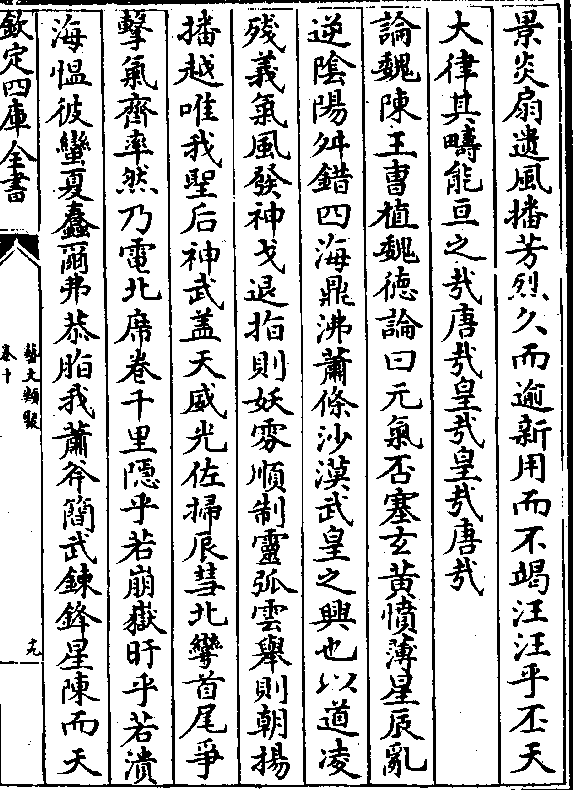 景炎扇遺風播芳烈久而逾新用而不竭汪汪乎丕天
大律其疇能亘之㢤唐㢤皇㢤皇㢤唐㢤
論魏陳王曹植魏德論曰元氣否塞玄黃憤薄星辰亂
逆陰陽舛錯四海鼎沸蕭條沙漠武皇之興也以道凌
殘義氣風發神戈退指則妖雰順制靈弧雲舉則朝揚
播越唯我聖后神武蓋天威光佐掃辰彗北彎首尾爭
擊氣齊率然乃電北席卷千里隱乎若崩嶽旰乎若潰
海愠彼蠻夏蠢爾弗恭脂我蕭斧簡武鍊鋒星陳而天
欽定四庫全書
藝文類聚
卷十
十九